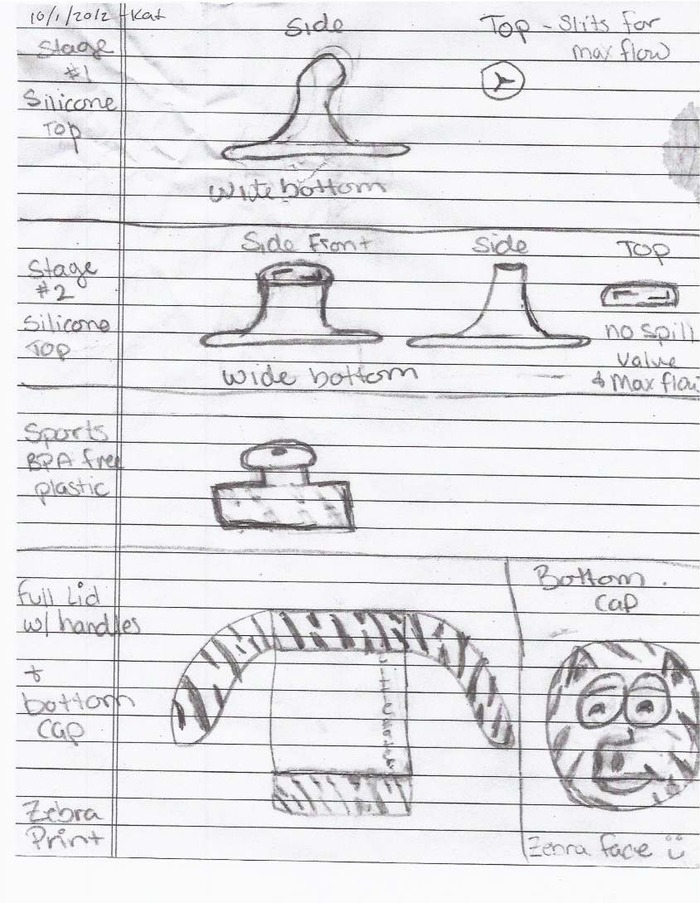 10/1/2012 Kat
Side
Top - Slits for
max flow
Stage
#1
Silicone
Top
Wide bottom
Stage
#2
Silicone
TOP
Side Front
Side
TOP
no spill
value
& Max flow
Wide bottom
Sports
BPA free
plastic
Full Lid
w/ handles
+
bottom
cap
Zebra
Print
Bottom
cap
Zebra face